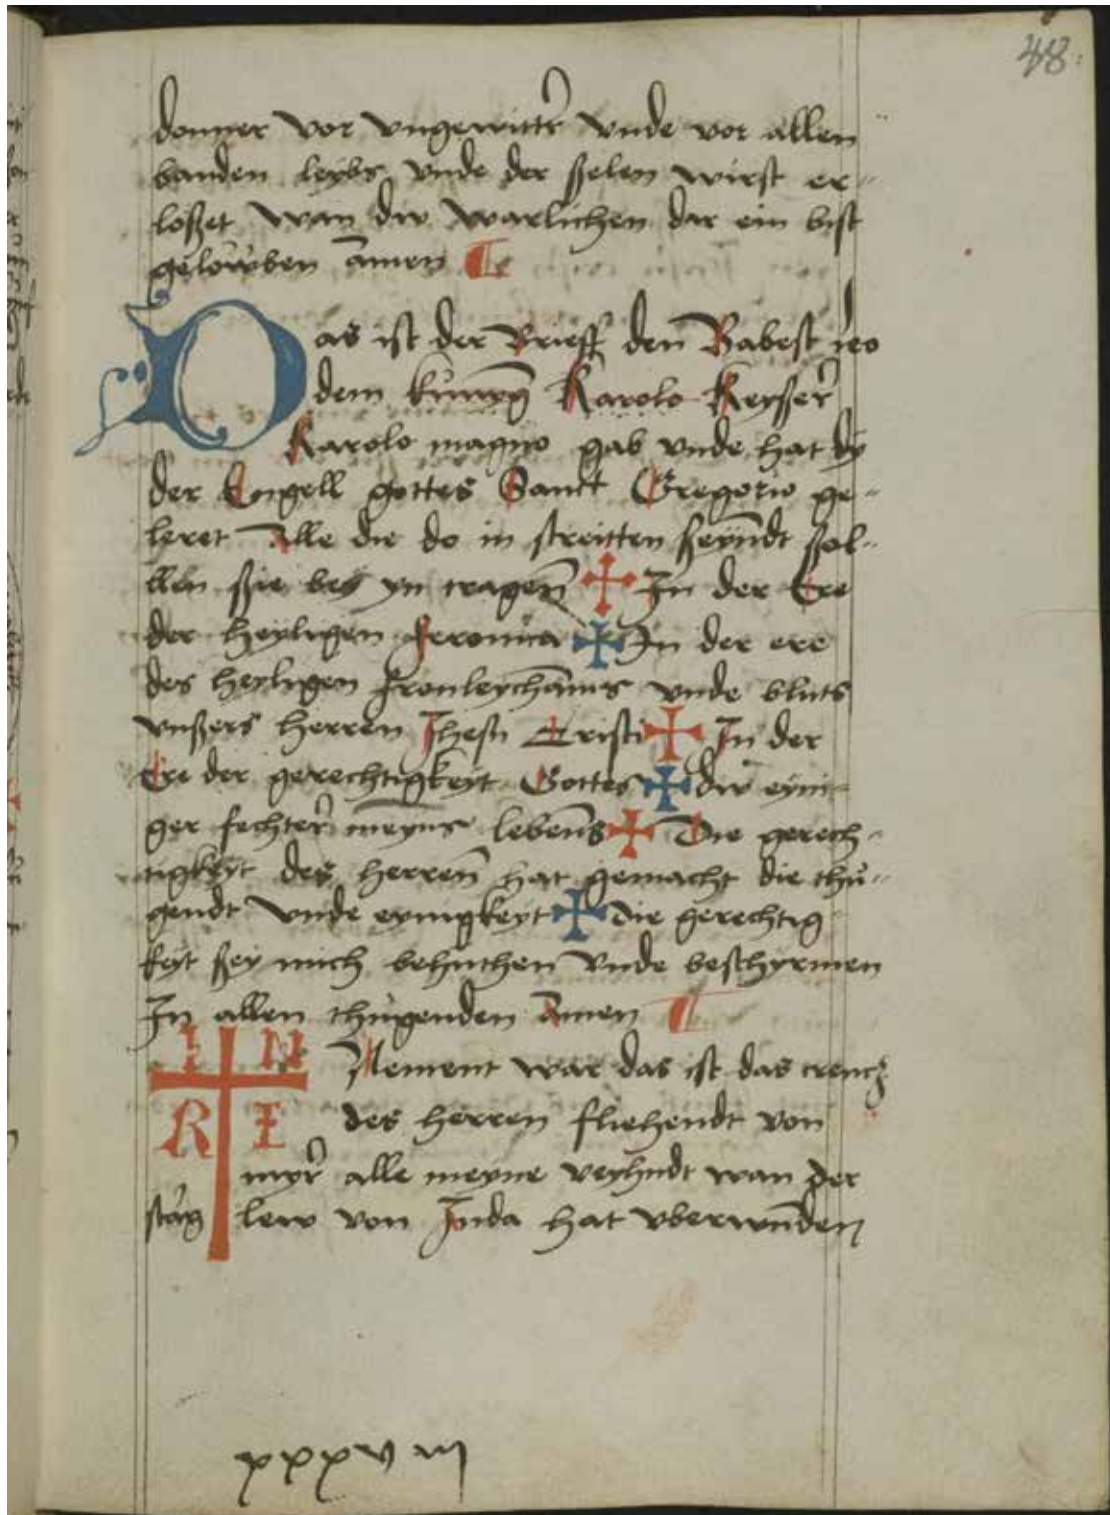 48
donner vor vngewittr̄ vnde vor allen
banden leybs vnde der ßelen wirst er-
loßet wan dw warlichen dar ein bist
gelowben amen
Das ist der Brieff den Babest leo
dem kunnyg Karolo Keyßer
Karolo magno gab vnde hat dy
der Engell gottes Sanct Gregorio ge-
leret Alle die do in streitten ßeyndt ßol-
llen ßie bey yn tragen ✠ In der Ere
der heyligen fronica ✠ In der ere
des heyligen fronleychams vnde bluts
vnßers herren Jhesu Cristi ✠ In der
Ere der gerechtigkeyt Gottes ✠ dw eyni-
ger fechter meyns lebens ✠ Die gerech-
tigkeyt des herren hat gemacht die thu-
gendt vnde eynigkeyt ✠ die gerechtig-
keyt ßey mich behuthen vnde beschyrmen
In allen thugenden amen
I N R I
Nement war das ist das creucz
des herren fliehendt von
myr alle meyne veyhndt wan der
starg lew von Juda hat vberwunden
xxxviii